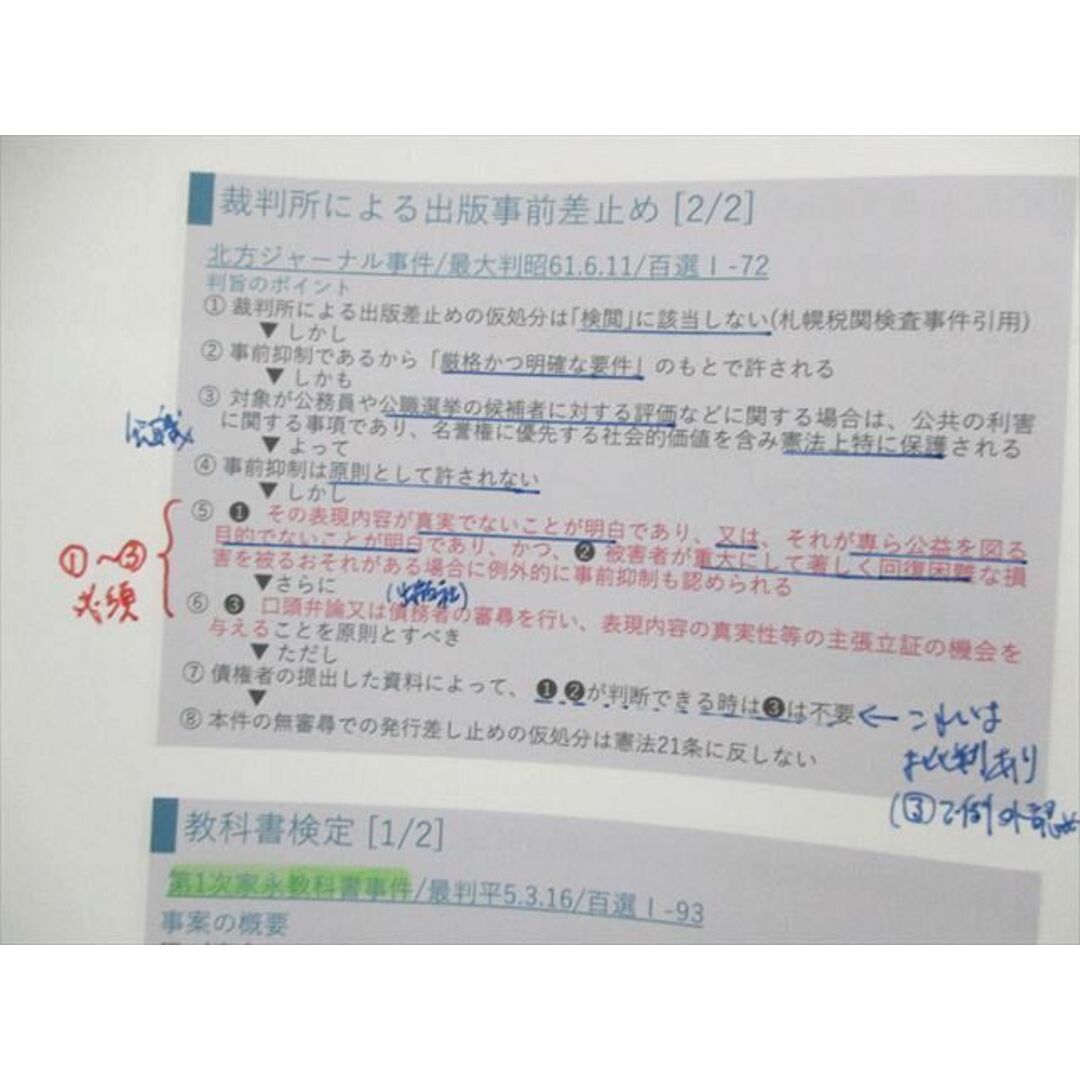 裁判所による出版事前差止め [2/2]
北方ジャーナル事件/最大判昭61.6.11/百選Ⅰ-72
判旨のポイント
① 裁判所による出版差止めの仮処分は「検閲」に該当しない(札幌税関検査事件引用)
▼ しかし
② 事前抑制であるから「厳格かつ明確な要件」のもとで許される
▼ しかも
③ 対象が公務員や公職選挙の候補者に対する評価などに関する場合は、公共の利害
に関する事項であり、名誉権に優先する社会的価値を含み憲法上特に保護される
▼ よって
④ 事前抑制は原則として許されない
▼ しかし
⑤ ❶ その表現内容が真実でないことが明白であり、又は、それが専ら公益を図る
目的でないことが明白であり、かつ、❷ 被害者が重大にして著しく回復困難な損
害を被るおそれがある場合に例外的に事前抑制も認められる
①〜③
必須
▼さらに
(出版社)
⑥ ❸ 口頭弁論又は債務者の審尋を行い、表現内容の真実性等の主張立証の機会を
与えることを原則とすべき
▼ ただし
⑦ 債権者の提出した資料によって、❶❷が判断できる時は❸は不要 ← これは
批判あり
(③で例外認め
▼
⑧ 本件の無審尋での発行差し止めの仮処分は憲法21条に反しない
教科書検定 [1/2]
第1次家永教科書事件/最判平5.3.16/百選Ⅰ-93
事案の概要